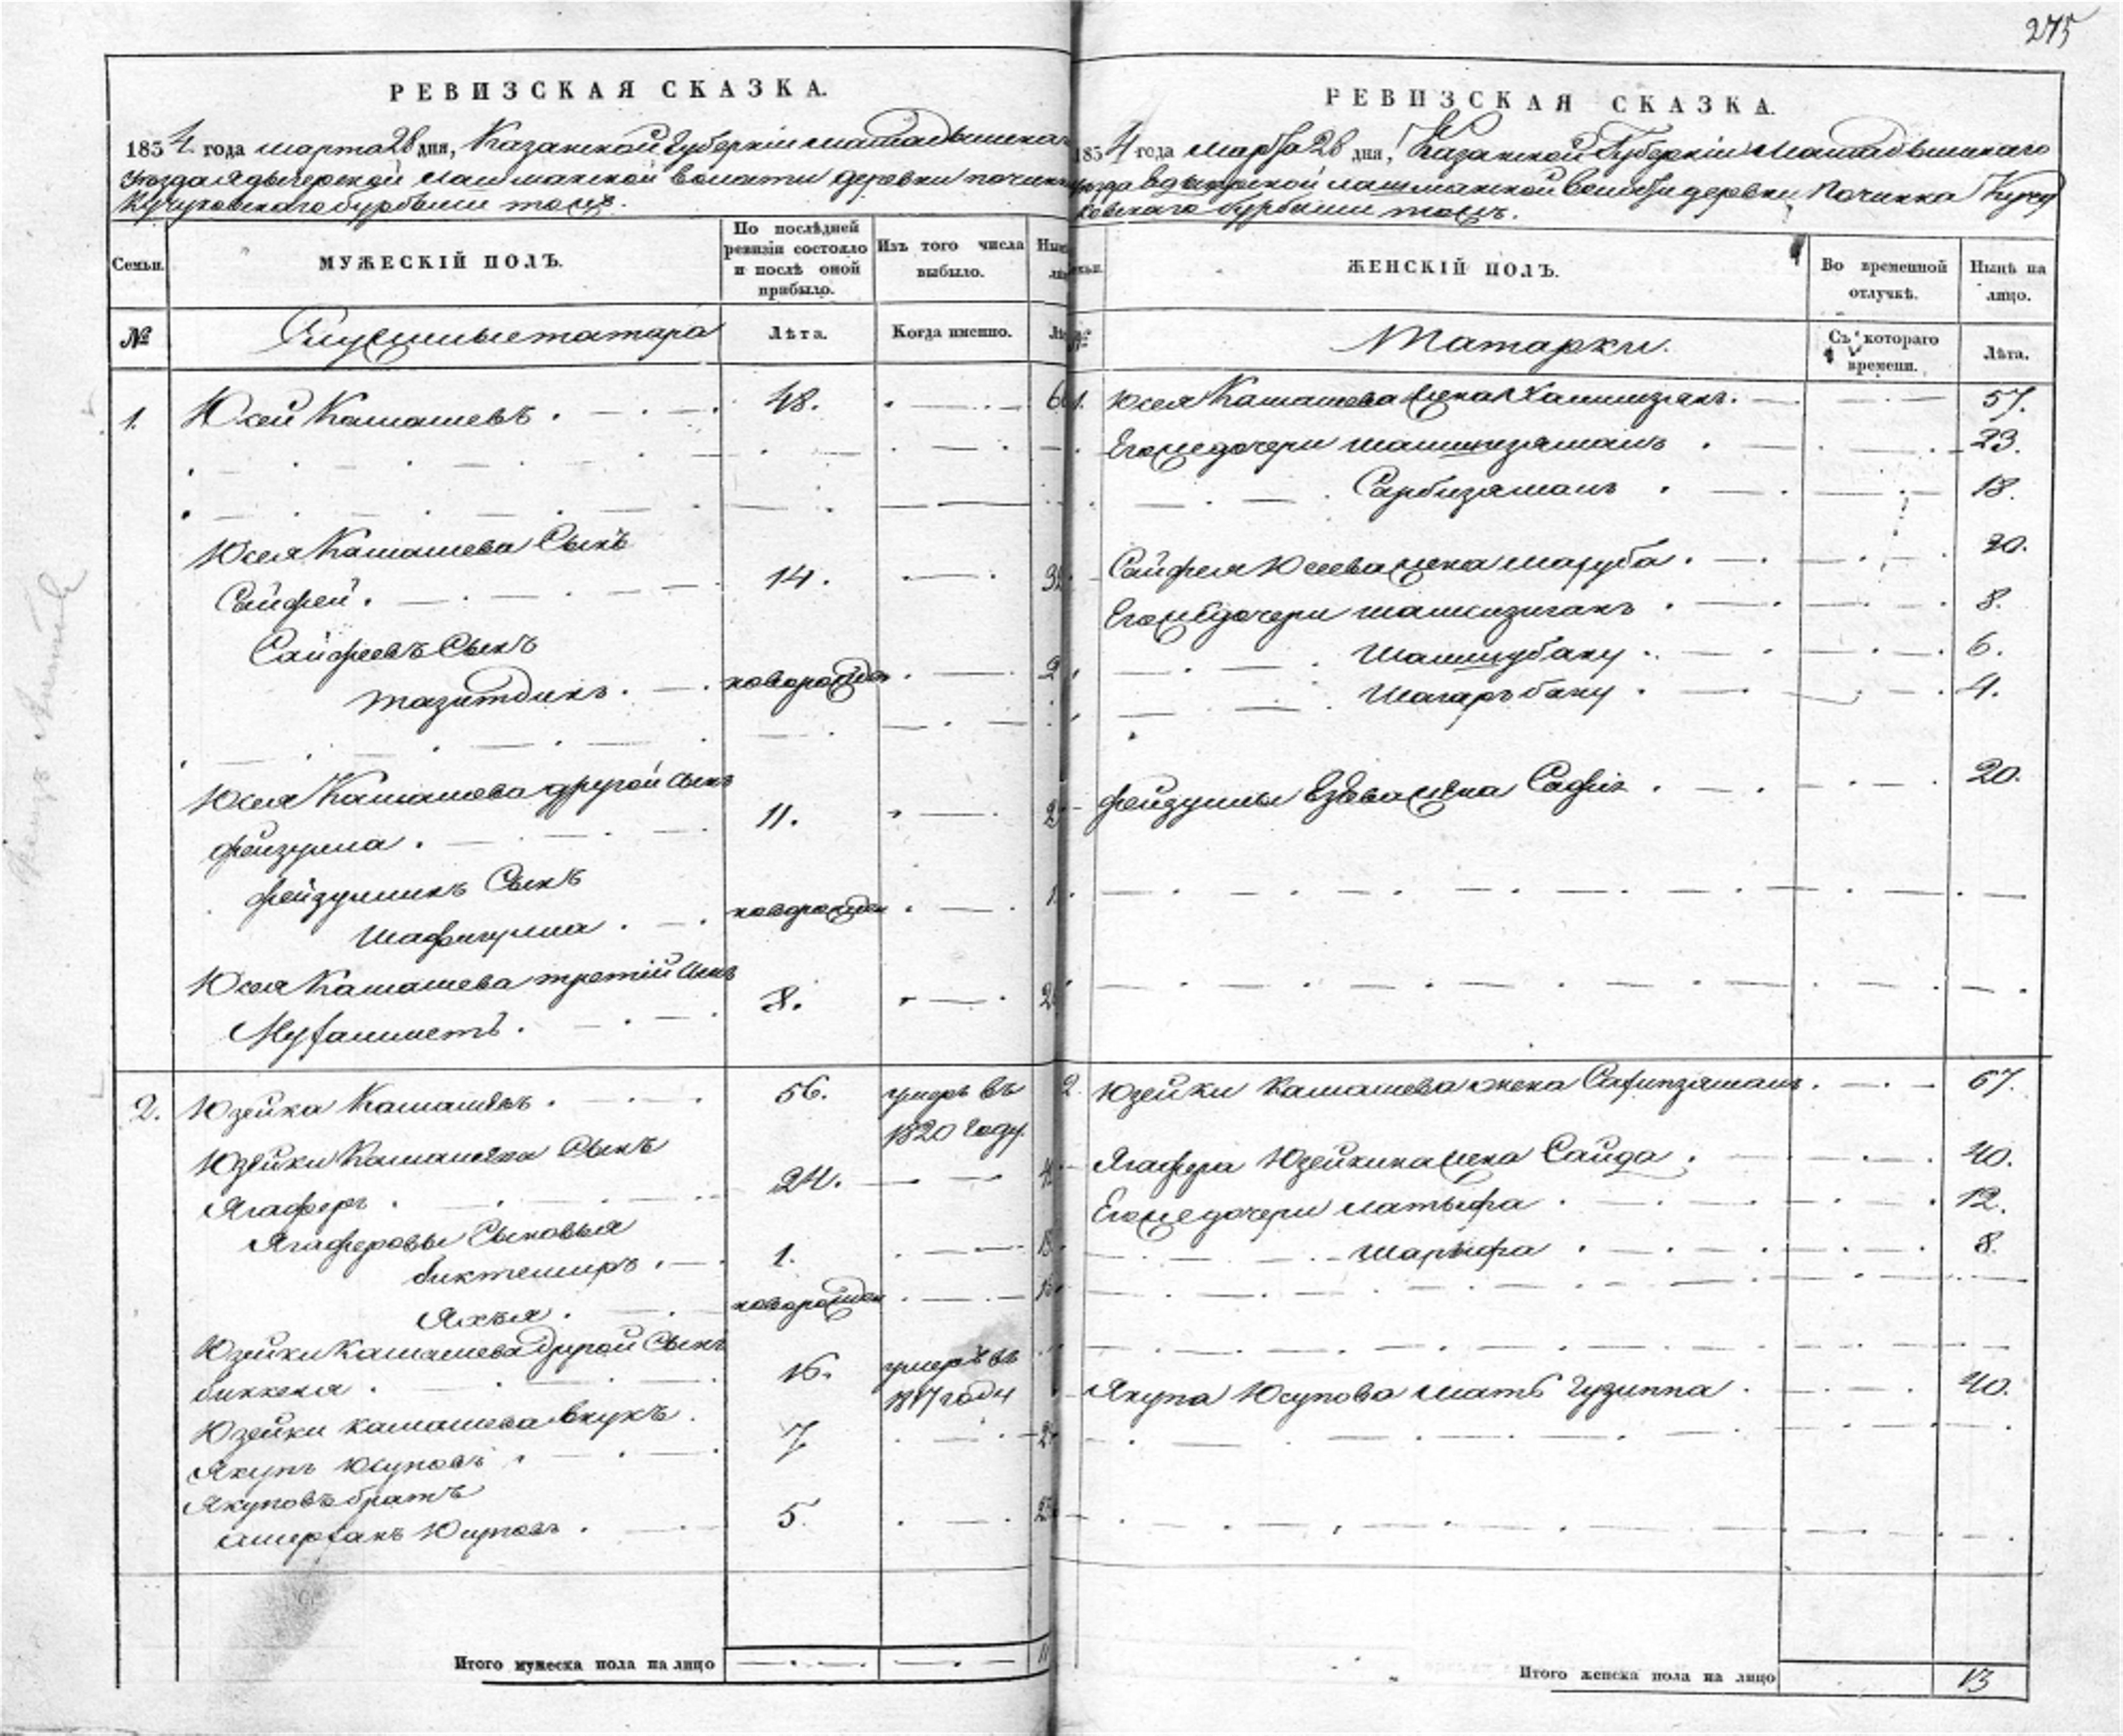 275
РЕВИЗСКАЯ СКАЗКА.
1834 года марта 28 дня, Казанской Губернiи мамадышскаго
уезда лашманской волости деревни починка
Кучуковскаго бурбаши тожъ.
Семьи.
МУЖЕСКIЙ ПОЛЪ.
По послѣдней ревизiи состояло и послѣ оной прибыло.
Изъ того числа выбыло.
№
Служилые татара
Лѣта.
Когда именно.
1. Юсей Камашевъ. 48.
Юсея Камашева Сынъ
Сайфей. 14.
Сайфеевъ Сынъ
тазитдинъ. новорожден
Юсея Камашева другой сынъ
фейзулла. 11.
фейзуллинъ Сынъ
Шафигулла. новорожден
Юсея Камашева третiй сынъ
Мухамметъ. 8.
2. Юзейка Камашевъ. 56. умеръ въ
1820 году.
Юзейки Камашева Сынъ
Ягаферъ. 24.
Ягаферовы Сыновья
биктемиръ. 1.
Яхъя. новорожден
Юзейки Камашева другой Сынъ
биккеня. 16. умеръ въ
18 7 году
Юзейки Камашева внукъ.
Якупъ Юсуповъ. 7
Якуповъ братъ
Юсуповъ. 5.
Итого мужеска пола на лицо
РЕВИЗСКАЯ СКАЗКА.
1834 года марта 28 дня, Казанской Губернiи Мамадышскаго
уезда лашманской волости деревни Починка Кучу
ковскаго бурбаши тожъ.
ЖЕНСКIЙ ПОЛЪ.
Во временной отлучкѣ.
Нынѣ на лицо.
Татарки.
Съ котораго времени.
Лѣта.
1. Юсея Камашева жена 57.
Егоже дочери 23.
Сарбизямалъ. 18.
Сайфея Юсеева жена магуба. 30.
Егоже дочери 8.
Шамшубану. 6.
Шагарбану. 4.
фейзуллы жена Сафия. 20.
2. Юзейки Камашева жена Сафинзямалъ. 67.
Ягафера Юзейкина жена Саида. 40.
Егоже дочери латыфа. 12.
шарыфа. 8.
Якупа Юсупова мать Гузиппа. 40.
Итого женска пола на лицо 13